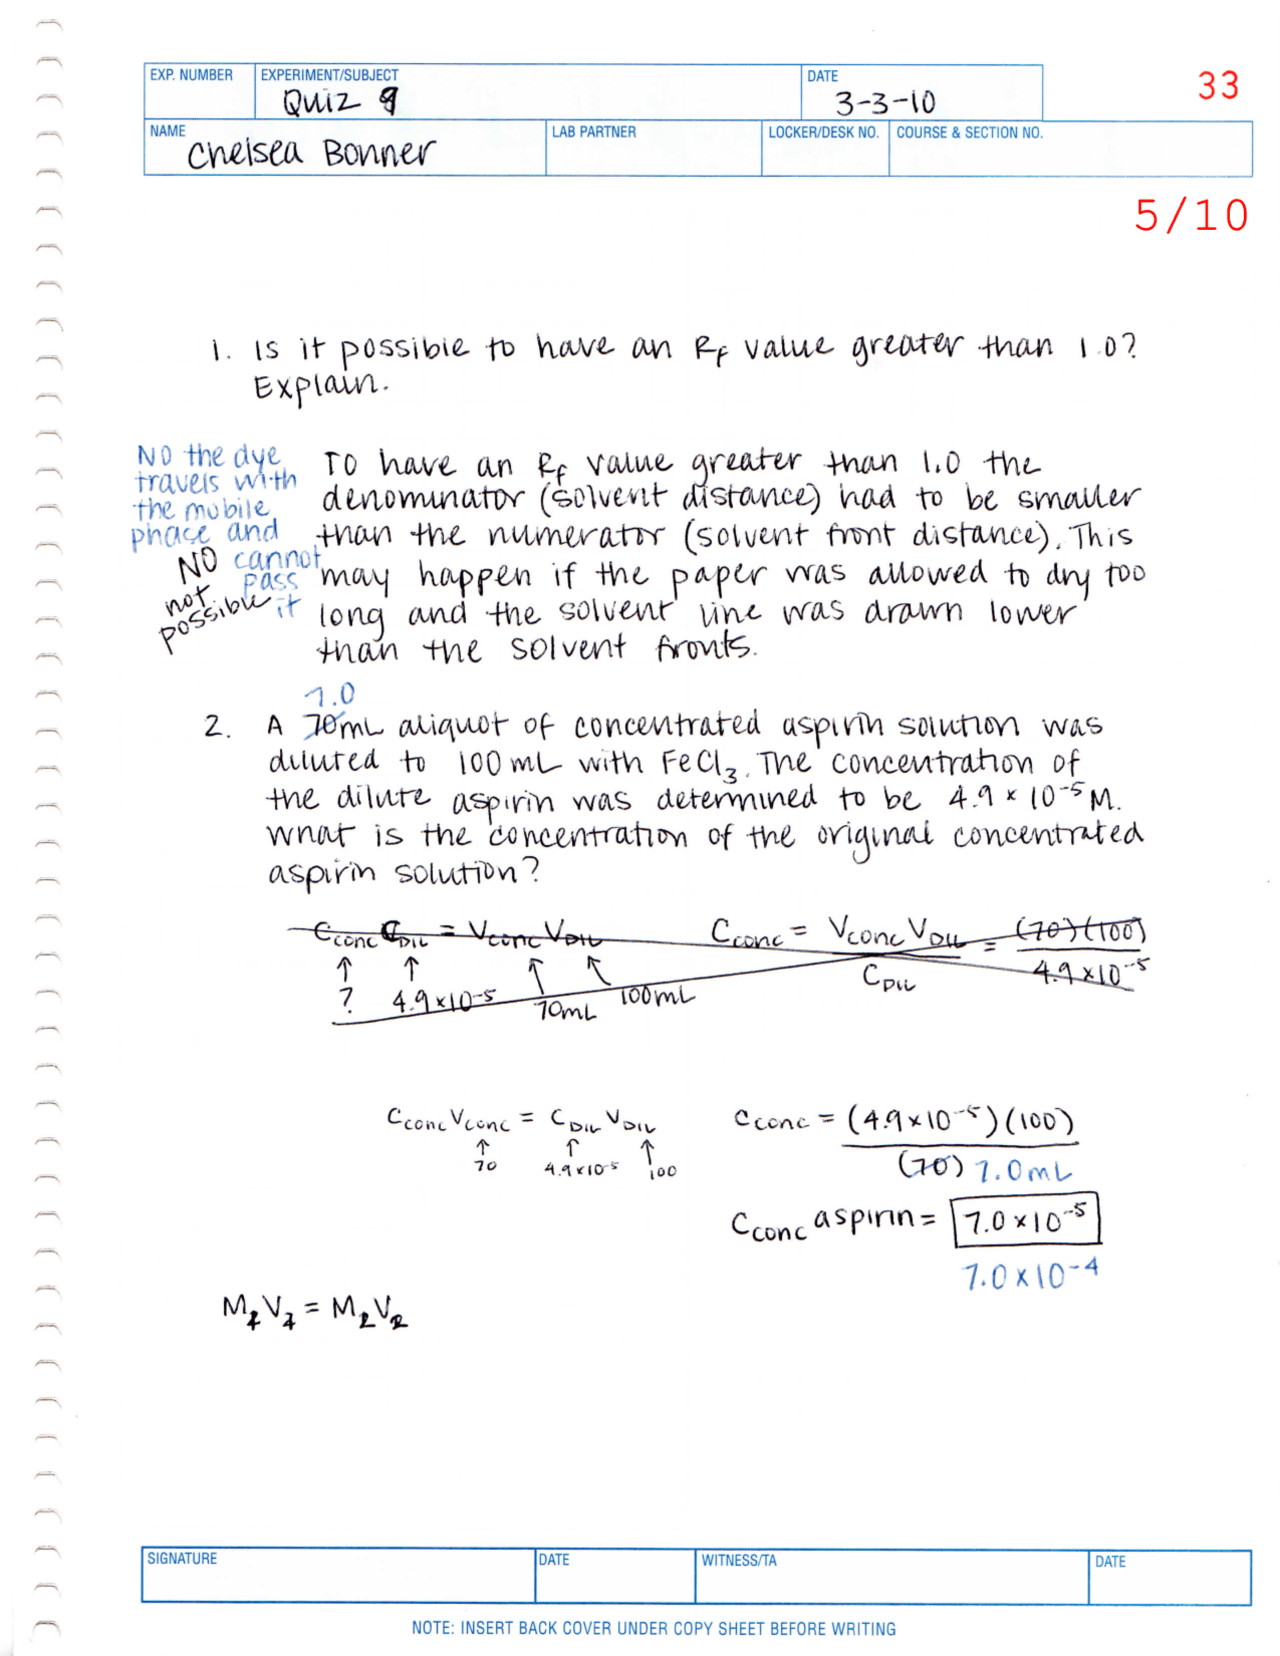 EXP. NUMBER EXPERIMENT/SUBJECT DATE 33
Quiz 9 3-3-10
NAME LAB PARTNER LOCKER/DESK NO. COURSE & SECTION NO.
Chelsea Bonner
5/10
1. Is it possible to have an Rf value greater than 1.0?
Explain.
NO the dye
travels with
the mobile
phase and
cannot
pass
it
NO
not
possible
To have an Rf value greater than 1.0 the
denominator (solvent distance) had to be smaller
than the numerator (solvent front distance). This
may happen if the paper was allowed to dry too
long and the solvent line was drawn lower
than the solvent fronts.
7.0
2. A 70mL aliquot of concentrated aspirin solution was
diluted to 100 mL with FeCl3. The concentration of
the dilute aspirin was determined to be 4.9 × 10-5 M.
What is the concentration of the original concentrated
aspirin solution?
Cconc CDIL = Vconc VDIL Cconc = Vconc VDIL = (70)(100)
CDIL 4.9 ×10-5
↑ ↑ ↑ ↑
? 4.9×10-5 70mL 100mL
Cconc Vconc = CDIL VDIL Cconc = (4.9×10-5)(100)
↑ ↑ ↑
70 4.9×10-5 100
(70) 7.0mL
Cconc aspirin = 7.0×10-5
7.0×10-4
M1V1 = M2V2
SIGNATURE DATE WITNESS/TA DATE
NOTE: INSERT BACK COVER UNDER COPY SHEET BEFORE WRITING